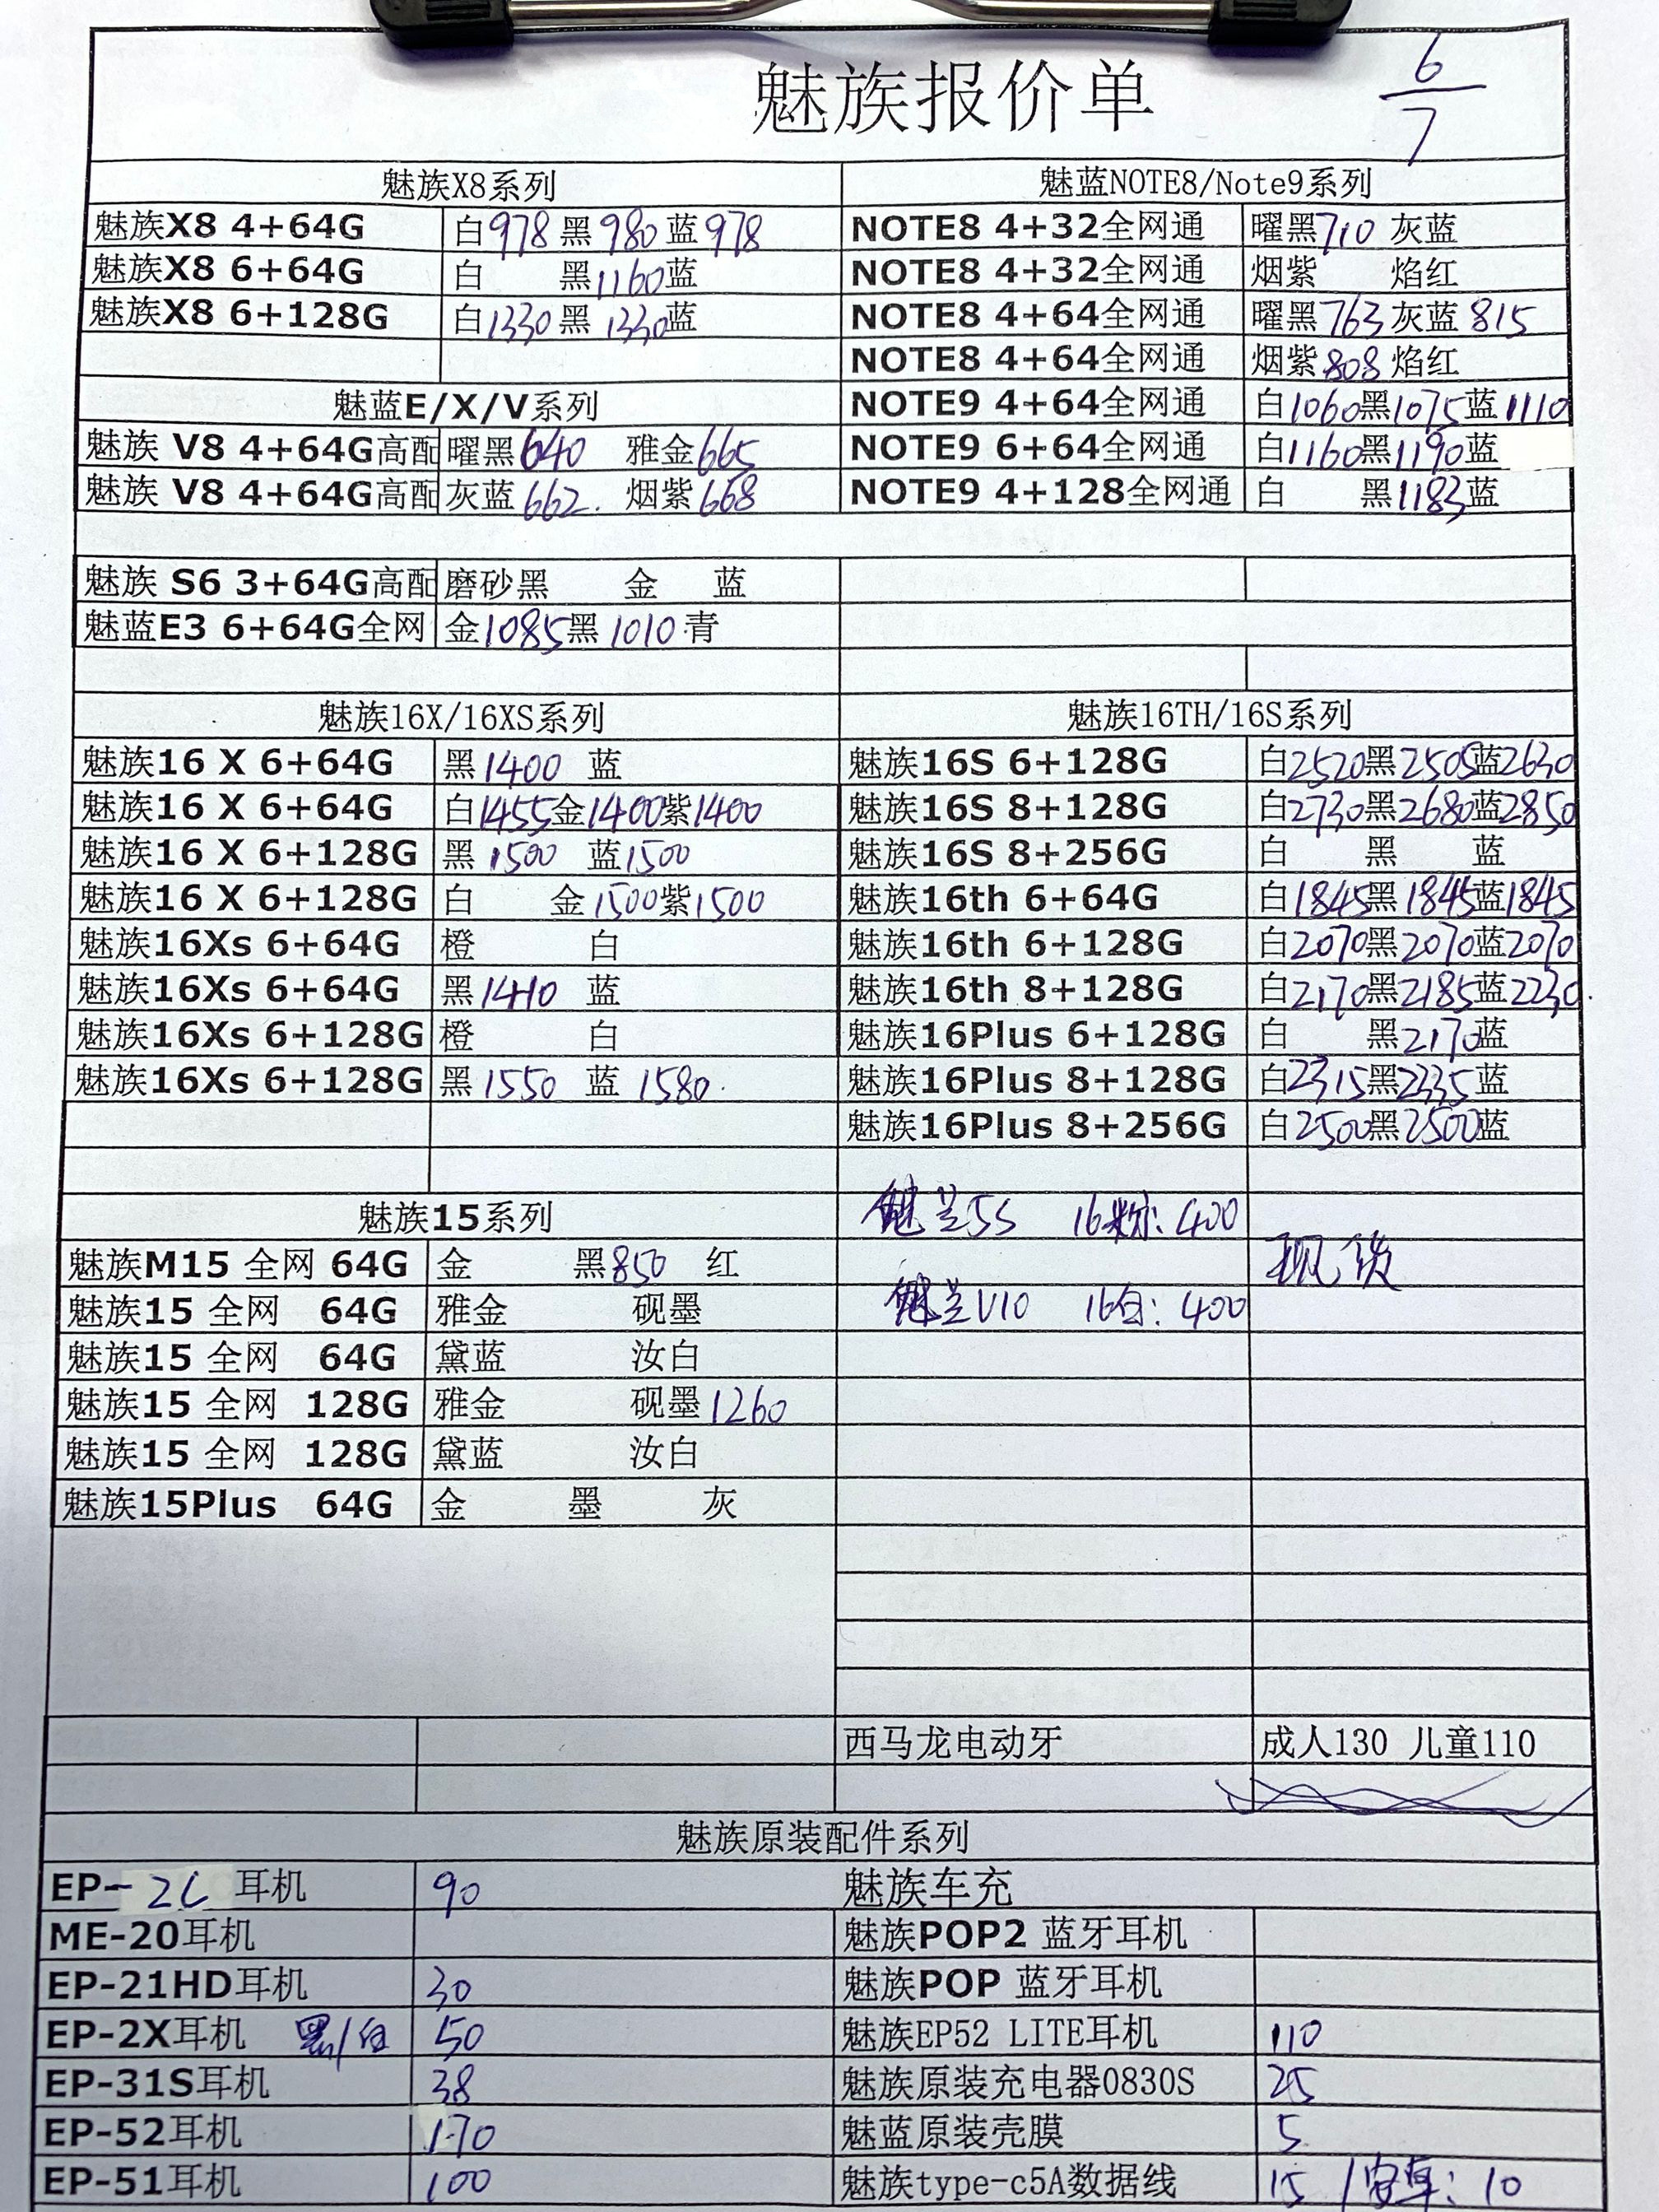 魅族报价单
6/7
魅族X8系列
魅族X8 4+64G 白978 黑980 蓝978
魅族X8 6+64G 白 黑1160 蓝
魅族X8 6+128G 白1330 黑1330 蓝
魅蓝E/X/V系列
魅族 V8 4+64G高配 曜黑640 雅金665
魅族 V8 4+64G高配 灰蓝662. 烟紫668
魅族 S6 3+64G高配 磨砂黑 金 蓝
魅蓝E3 6+64G全网 金1085 黑1010 青
魅蓝NOTE8/Note9系列
NOTE8 4+32全网通 曜黑710 灰蓝
NOTE8 4+32全网通 烟紫 焰红
NOTE8 4+64全网通 曜黑763 灰蓝815
NOTE8 4+64全网通 烟紫808 焰红
NOTE9 4+64全网通 白1060 黑1075 蓝1110
NOTE9 6+64全网通 白1160 黑1190 蓝
NOTE9 4+128全网通 白 黑1183 蓝
魅族16X/16XS系列
魅族16 X 6+64G 黑1400 蓝
魅族16 X 6+64G 白1455 金1400 紫1400
魅族16 X 6+128G 黑1500 蓝1500
魅族16 X 6+128G 白 金1500 紫1500
魅族16Xs 6+64G 橙 白
魅族16Xs 6+64G 黑1410 蓝
魅族16Xs 6+128G 橙 白
魅族16Xs 6+128G 黑1550 蓝1580.
魅族16TH/16S系列
魅族16S 6+128G 白2520 黑2505 蓝2630
魅族16S 8+128G 白2730 黑2680 蓝2850
魅族16S 8+256G 白 黑 蓝
魅族16th 6+64G 白1845 黑1845 蓝1845
魅族16th 6+128G 白2070 黑2070 蓝2070
魅族16th 8+128G 白2170 黑2185 蓝2230.
魅族16Plus 6+128G 白 黑2170 蓝
魅族16Plus 8+128G 白2315 黑2335 蓝
魅族16Plus 8+256G 白2500 黑2500 蓝
魅族15系列
魅族M15 全网 64G 金 黑850 红
魅族15 全网 64G 雅金 砚墨
魅族15 全网 64G 黛蓝 汝白
魅族15 全网 128G 雅金 砚墨1260
魅族15 全网 128G 黛蓝 汝白
魅族15Plus 64G 金 墨 灰
魅兰5S 16粉: 400
魅兰V10 16白: 400
西马龙电动牙 成人130 儿童110
魅族原装配件系列
EP-2C耳机 90 魅族车充
ME-20耳机 魅族POP2 蓝牙耳机
EP-21HD耳机 30 魅族POP 蓝牙耳机
EP-2X耳机 黑/白 50 魅族EP52 LITE耳机 110
EP-31S耳机 38 魅族原装充电器0830S 25
EP-52耳机 170 魅蓝原装壳膜 5
EP-51耳机 100 魅族type-c5A数据线 15 /安卓: 10